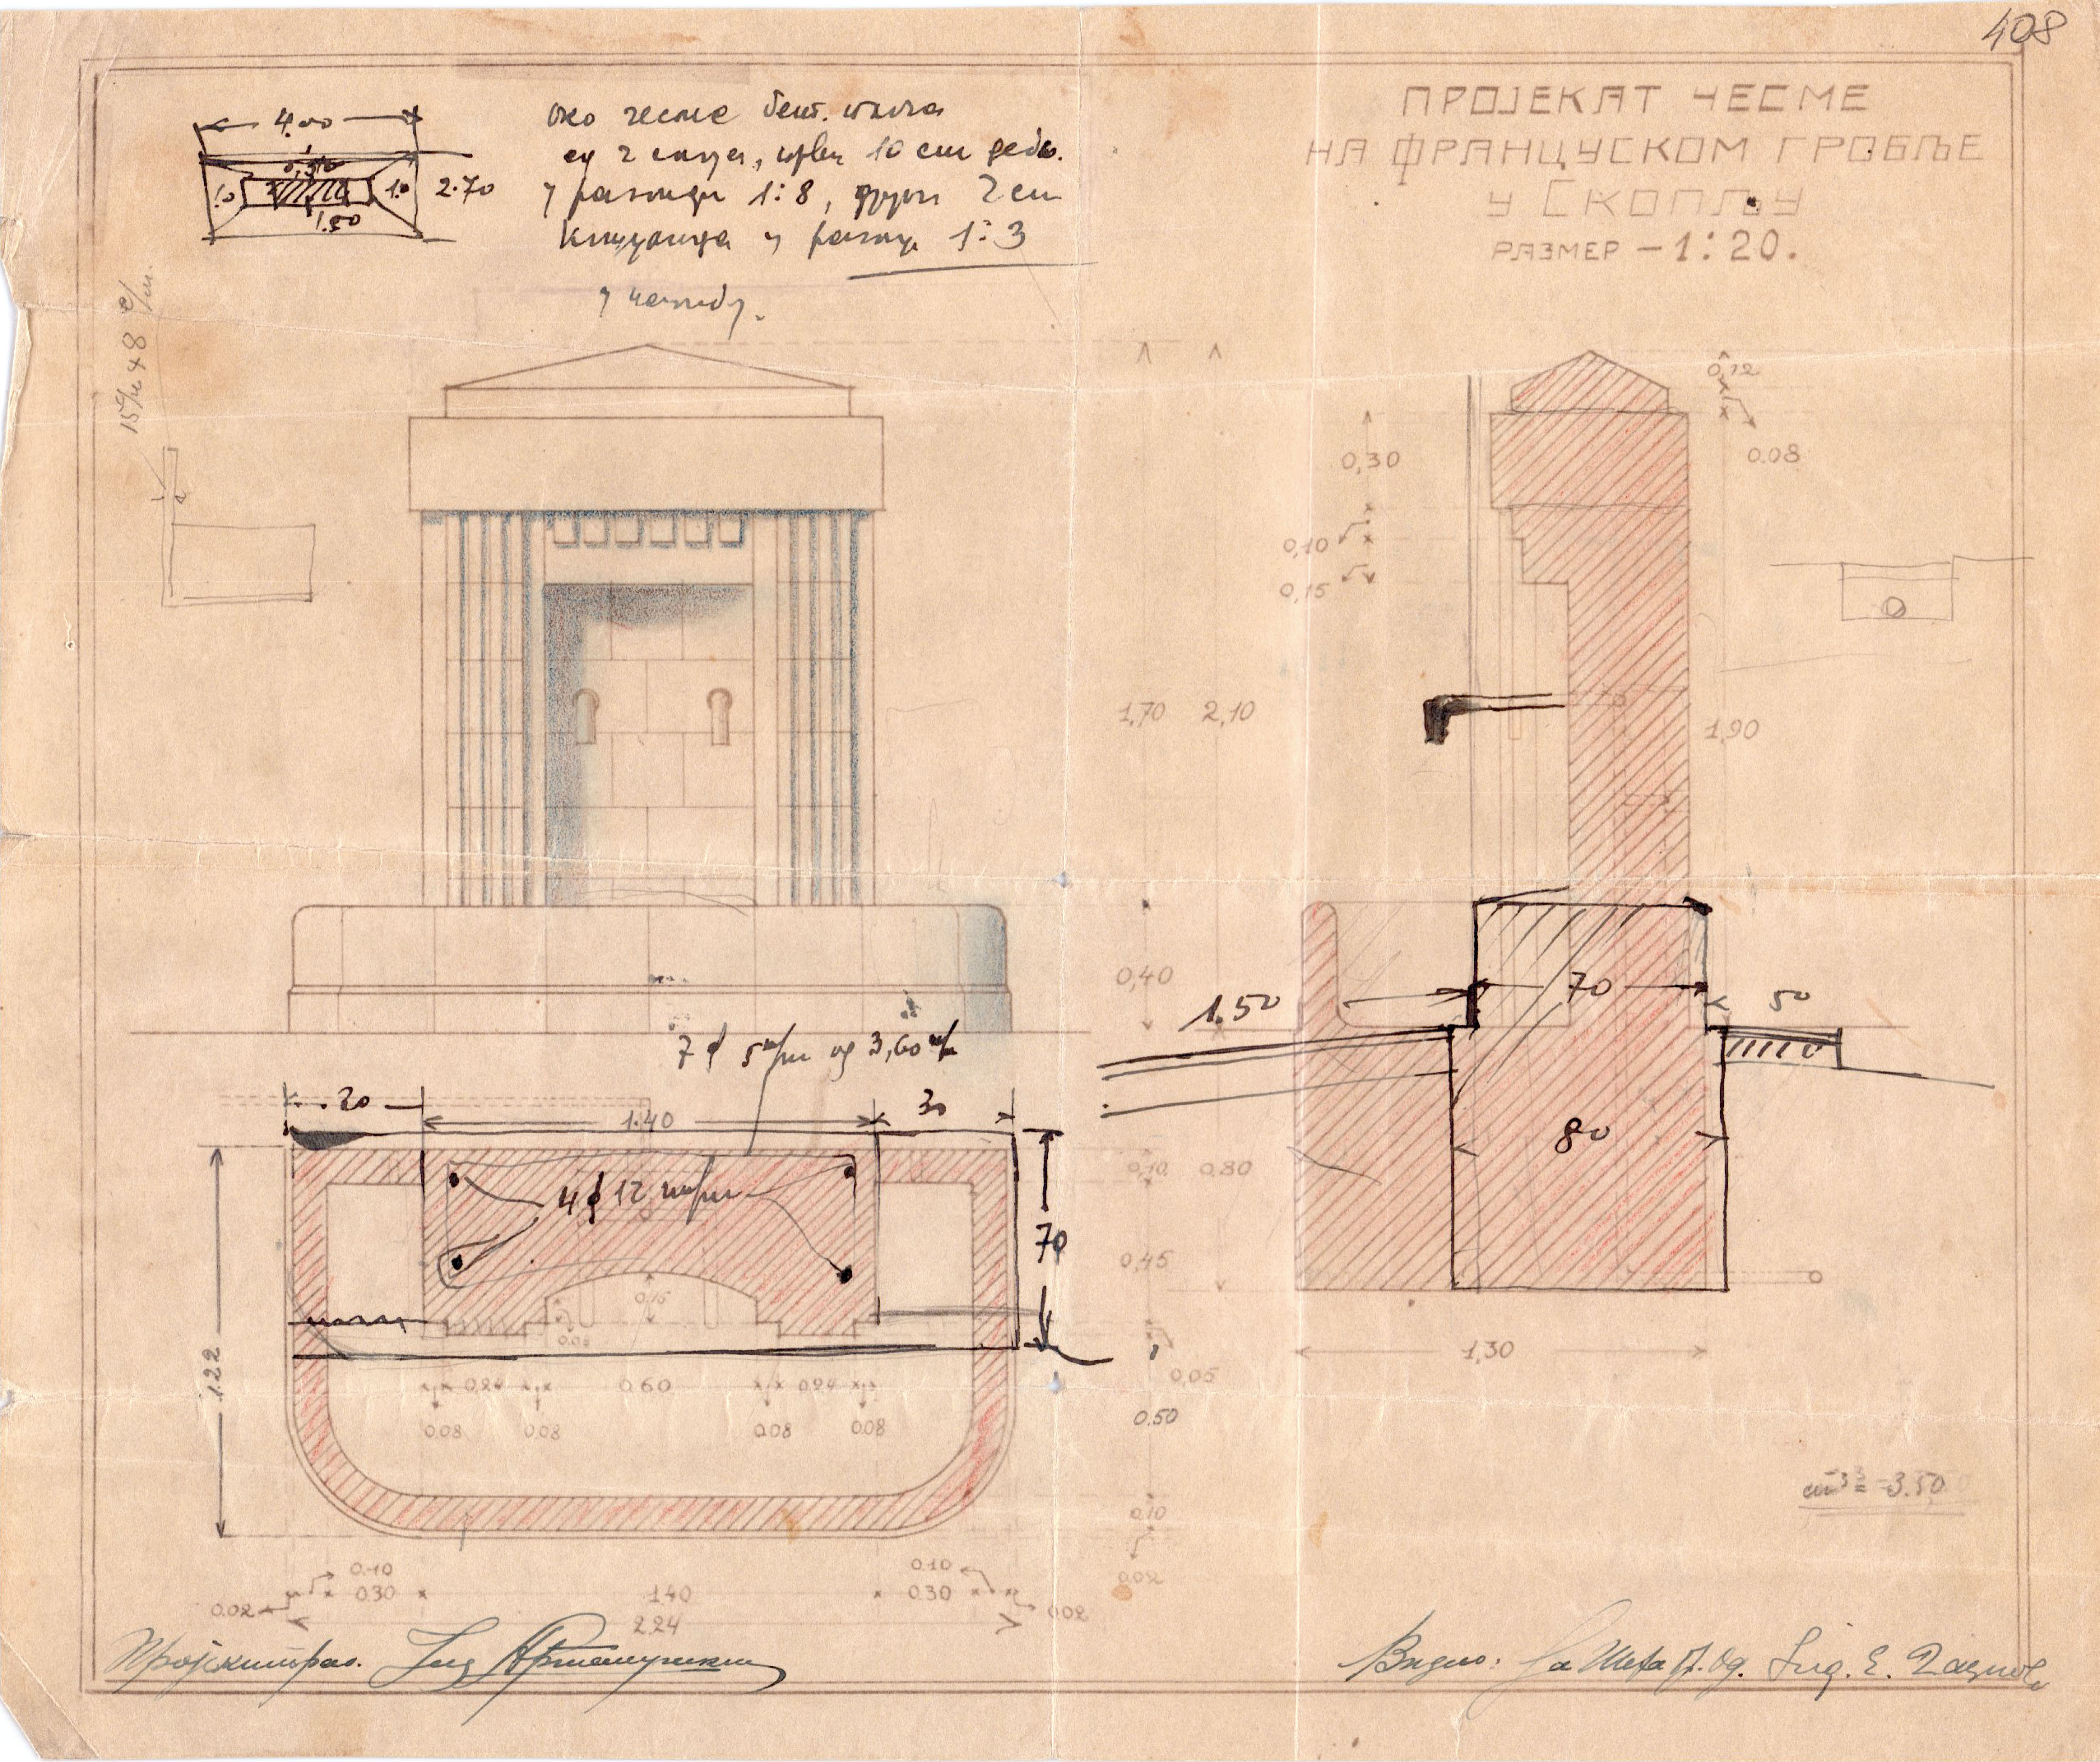 408
ПРОЈЕКАТ ЧЕСМЕ
НА ФРАНЦУСКОМ ГРОБЉЕ
У СКОПЉУ
РАЗМЕР – 1:20.
4.00
0,50
1.0
1.0
2.70
1.50
око чесме бет. плоча
од 2 слоја, први 10 cm дебљ.
у размери 1:8, други 2 cm
у размери 1:3
0,12
0.08
0,30
0,10
0,15
1,70
2,10
1,90
0,40
1.50
70
50
7 ϕ 5 m/m од 3,60 m/m
20
1.40
30
4 ϕ 12 m/m
70
80
0,10
0,80
0,45
0,15
1.22
1,30
0,05
0.24
0.60
0.24
0.50
0.08
0.08
0.08
0.08
3.50
0.10
0.02
0.10
0.30
1.40
0.10
0.30
0.02
0.02
2.24
Пројектирао.
Видио: За Шефа
Ing. E.